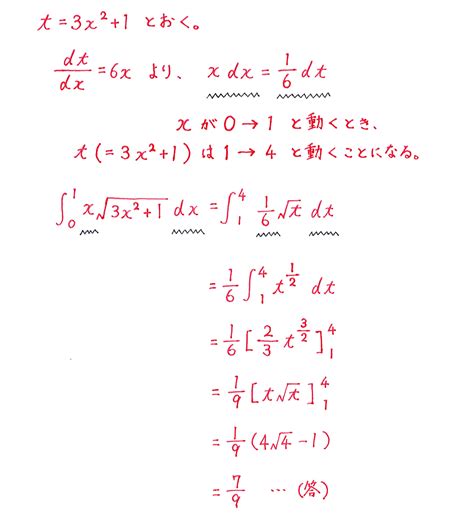 t = 3x²+1 とおく。
dt/dx = 6x より、 x dx = 1/6 dt
x が 0 → 1 と動くとき、
t (= 3x²+1) は 1 → 4 と動くことになる。
∫₀¹ x√(3x²+1) dx = ∫₁⁴ 1/6 √t dt
= 1/6 ∫₁⁴ t^(1/2) dt
= 1/6 [ 2/3 t^(3/2) ]₁⁴
= 1/9 [ t√t ]₁⁴
= 1/9 (4√4 − 1)
= 7/9 … (答)